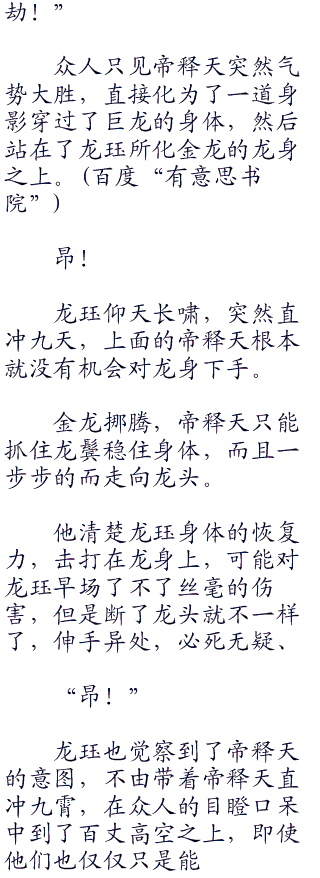 劫！”
众人只见帝释天突然气
势大胜，直接化为了一道身
影穿过了巨龙的身体，然后
站在了龙珏所化金龙的龙身
之上。(百度“有意思书
院”)
昂！
龙珏仰天长啸，突然直
冲九天，上面的帝释天根本
就没有机会对龙身下手。
金龙挪腾，帝释天只能
抓住龙鬓稳住身体，而且一
步步的而走向龙头。
他清楚龙珏身体的恢复
力，击打在龙身上，可能对
龙珏早场了不了丝毫的伤
害，但是断了龙头就不一样
了，伸手异处，必死无疑、
“昂！”
龙珏也觉察到了帝释天
的意图，不由带着帝释天直
冲九霄，在众人的目瞪口呆
中到了百丈高空之上，即使
他们也仅仅只是能